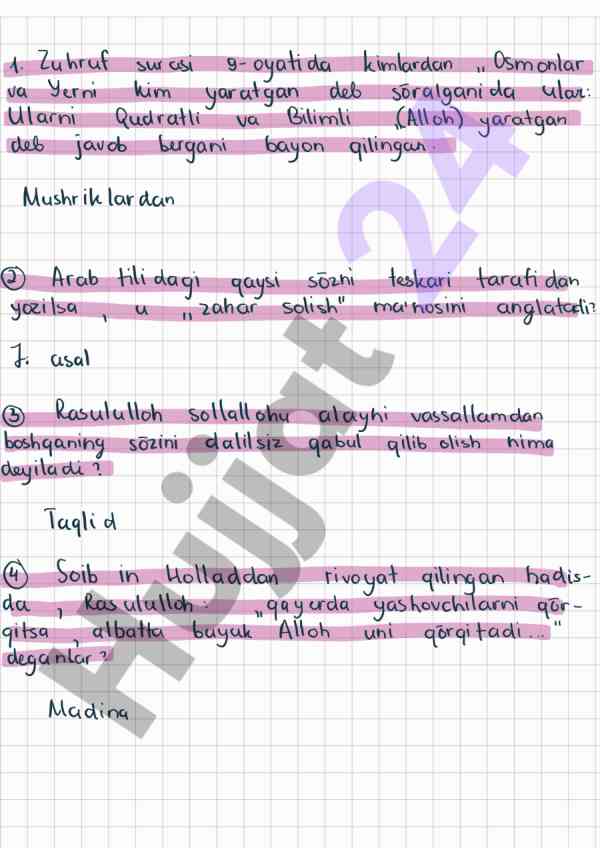 1. Zuhruf surasi 9-oyatida kimlardan „Osmonlar
va Yerni kim yaratgan deb sōralganida ular:
Ularni Qudratli va Bilimli „(Alloh) yaratgan
deb javob bergani bayon qilingan.
Mushriklardan
② Arab tilidagi qaysi sōzni teskari tarafidan
yozilsa , u „zahar solish" ma'nosini anglatadi?
J. asal
③ Rasululloh sollallohu alayhi vassallamdan
boshqaning sōzini dalilsiz qabul qilib olish nima
deyiladi?
Taqlid
④ Soib in Holladdan rivoyat qilingan hadis-
da , Rasululloh: „qayerda yashovchilarni qōr-
qitsa , albatta buyuk Alloh uni qōrqitadi..."
deganlar?
Madina
Hujjat 24